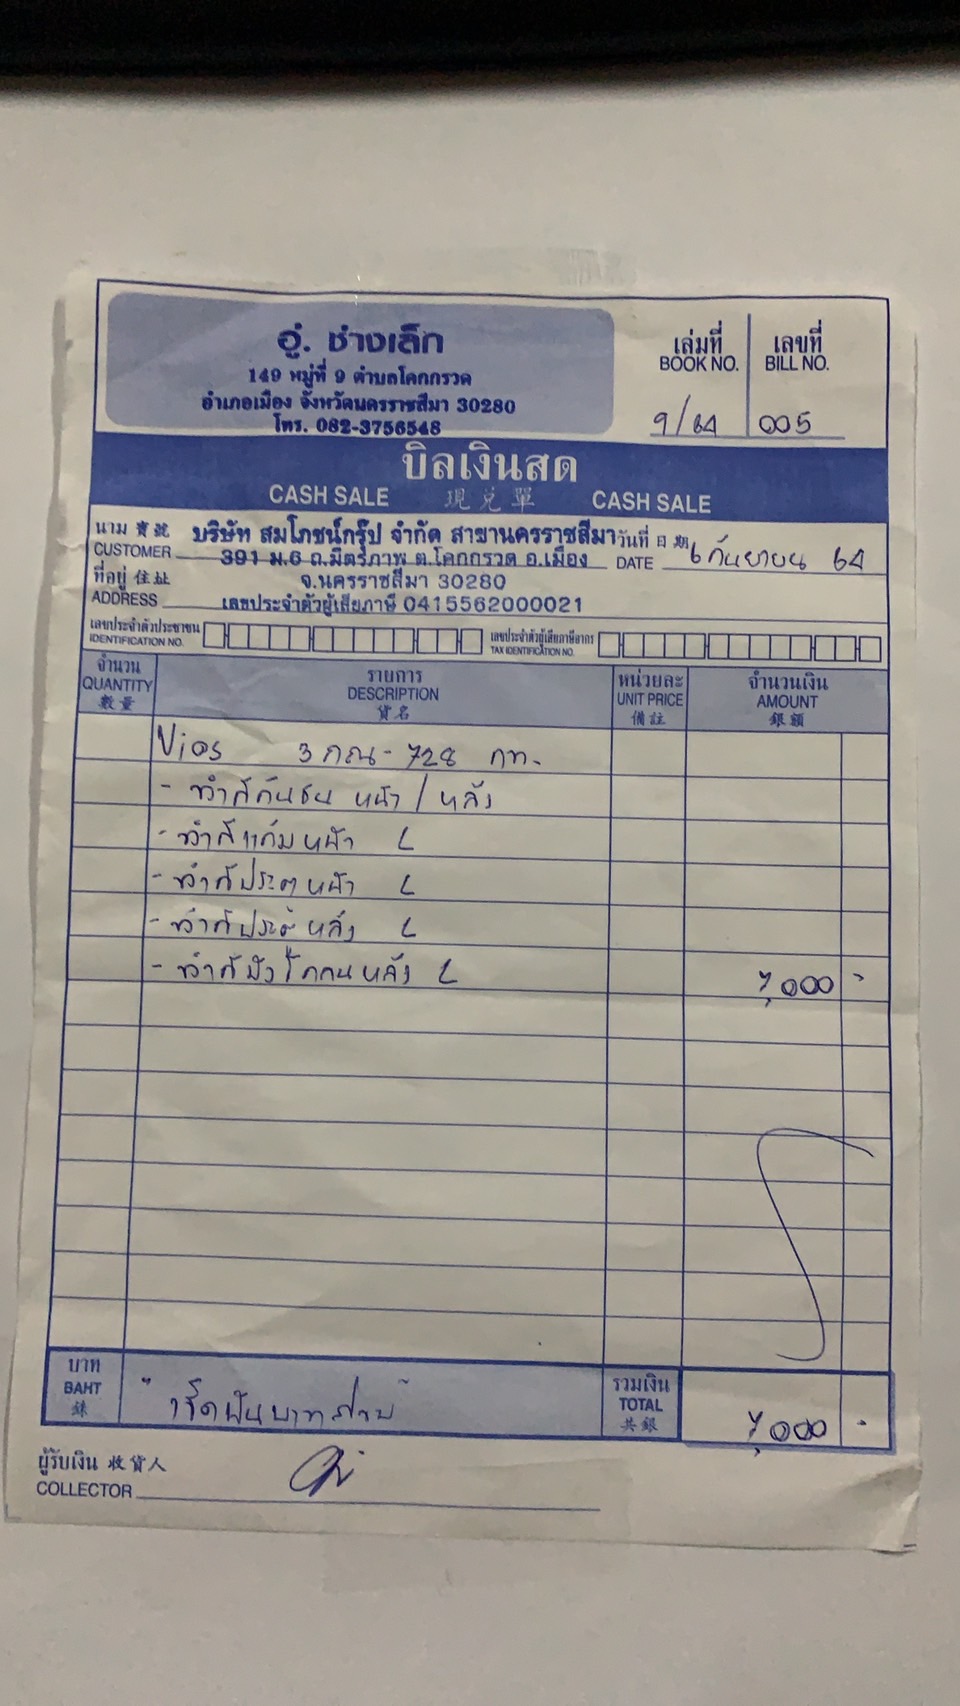 อู่. ช่างเล็ก
149 หมู่ที่ 9 ตำบลโคกกรวด
อำเภอเมือง จังหวัดนครราชสีมา 30280
โทร. 082-3756548
เล่มที่ เลขที่
BOOK NO. BILL NO.
9/64 005
บิลเงินสด
CASH SALE 現兌單 CASH SALE
นาม 寶號 บริษัท สมโภชน์กรุ๊ป จำกัด สาขานครราชสีมา วันที่ 日期
CUSTOMER 391 ม.6 ถ.มิตรภาพ ต.โคกกรวด อ.เมือง DATE 6 กันยายน 64
ที่อยู่ 住址 จ.นครราชสีมา 30280
ADDRESS เลขประจำตัวผู้เสียภาษี 0415562000021
เลขประจำตัวประชาชน เลขประจำตัวผู้เสียภาษีอากร
IDENTIFICATION NO. TAX IDENTIFICATION NO.
จำนวน รายการ หน่วยละ จำนวนเงิน
QUANTITY DESCRIPTION UNIT PRICE AMOUNT
數量 貨名 備註 銀額
Vios 3กณ-728 กท.
- ทำสีกันชน หน้า / หลัง
- ทำสีแก้มหน้า L
- ทำสีประตูหน้า L
- ทำสีประตูหลัง L
- ทำสีบังโคลนหลัง L 7,000 -
บาท รวมเงิน
BAHT เจ็ดพันบาทถ้วน TOTAL 7,000 -
銖 共銀
ผู้รับเงิน 收貨人
COLLECTOR